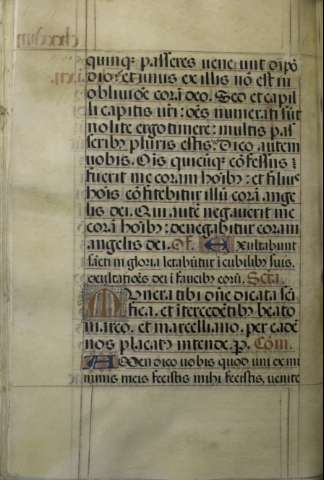 quinq̨ passeres veneunt dipō
dio: et unus ex illis nō est in
obliuiōe corā deo. Sed et capil
li capitis urī: oēs numerati sūt
nolite ergo timere: multis pas
seribꝰ pluris estis: Dico autem
uobis. Oīs quicūq̨ cōfessus
fuerit me coram hoībꝰ: et filius
hoīs cōfitebitur illū corā ange
lis dei. Qui autē negauerit me
corā hoībꝰ: denegabitur coram
angelis dei. Of. Exultabunt
sācti in gloria letabūtur ī cubilibus suis.
exultatiōes dei ī faucibꝰ corū. Scta.
Munera tibi dn̄e dicata scī
fica. et ītercedētibꝰ beato
marco. et marcelliano. per eadē
nos placatꝰ intende. P. Cōm.
Amen dico uobis quod uni ex mi
nimis meis fecistis mihi fecistis, uenite